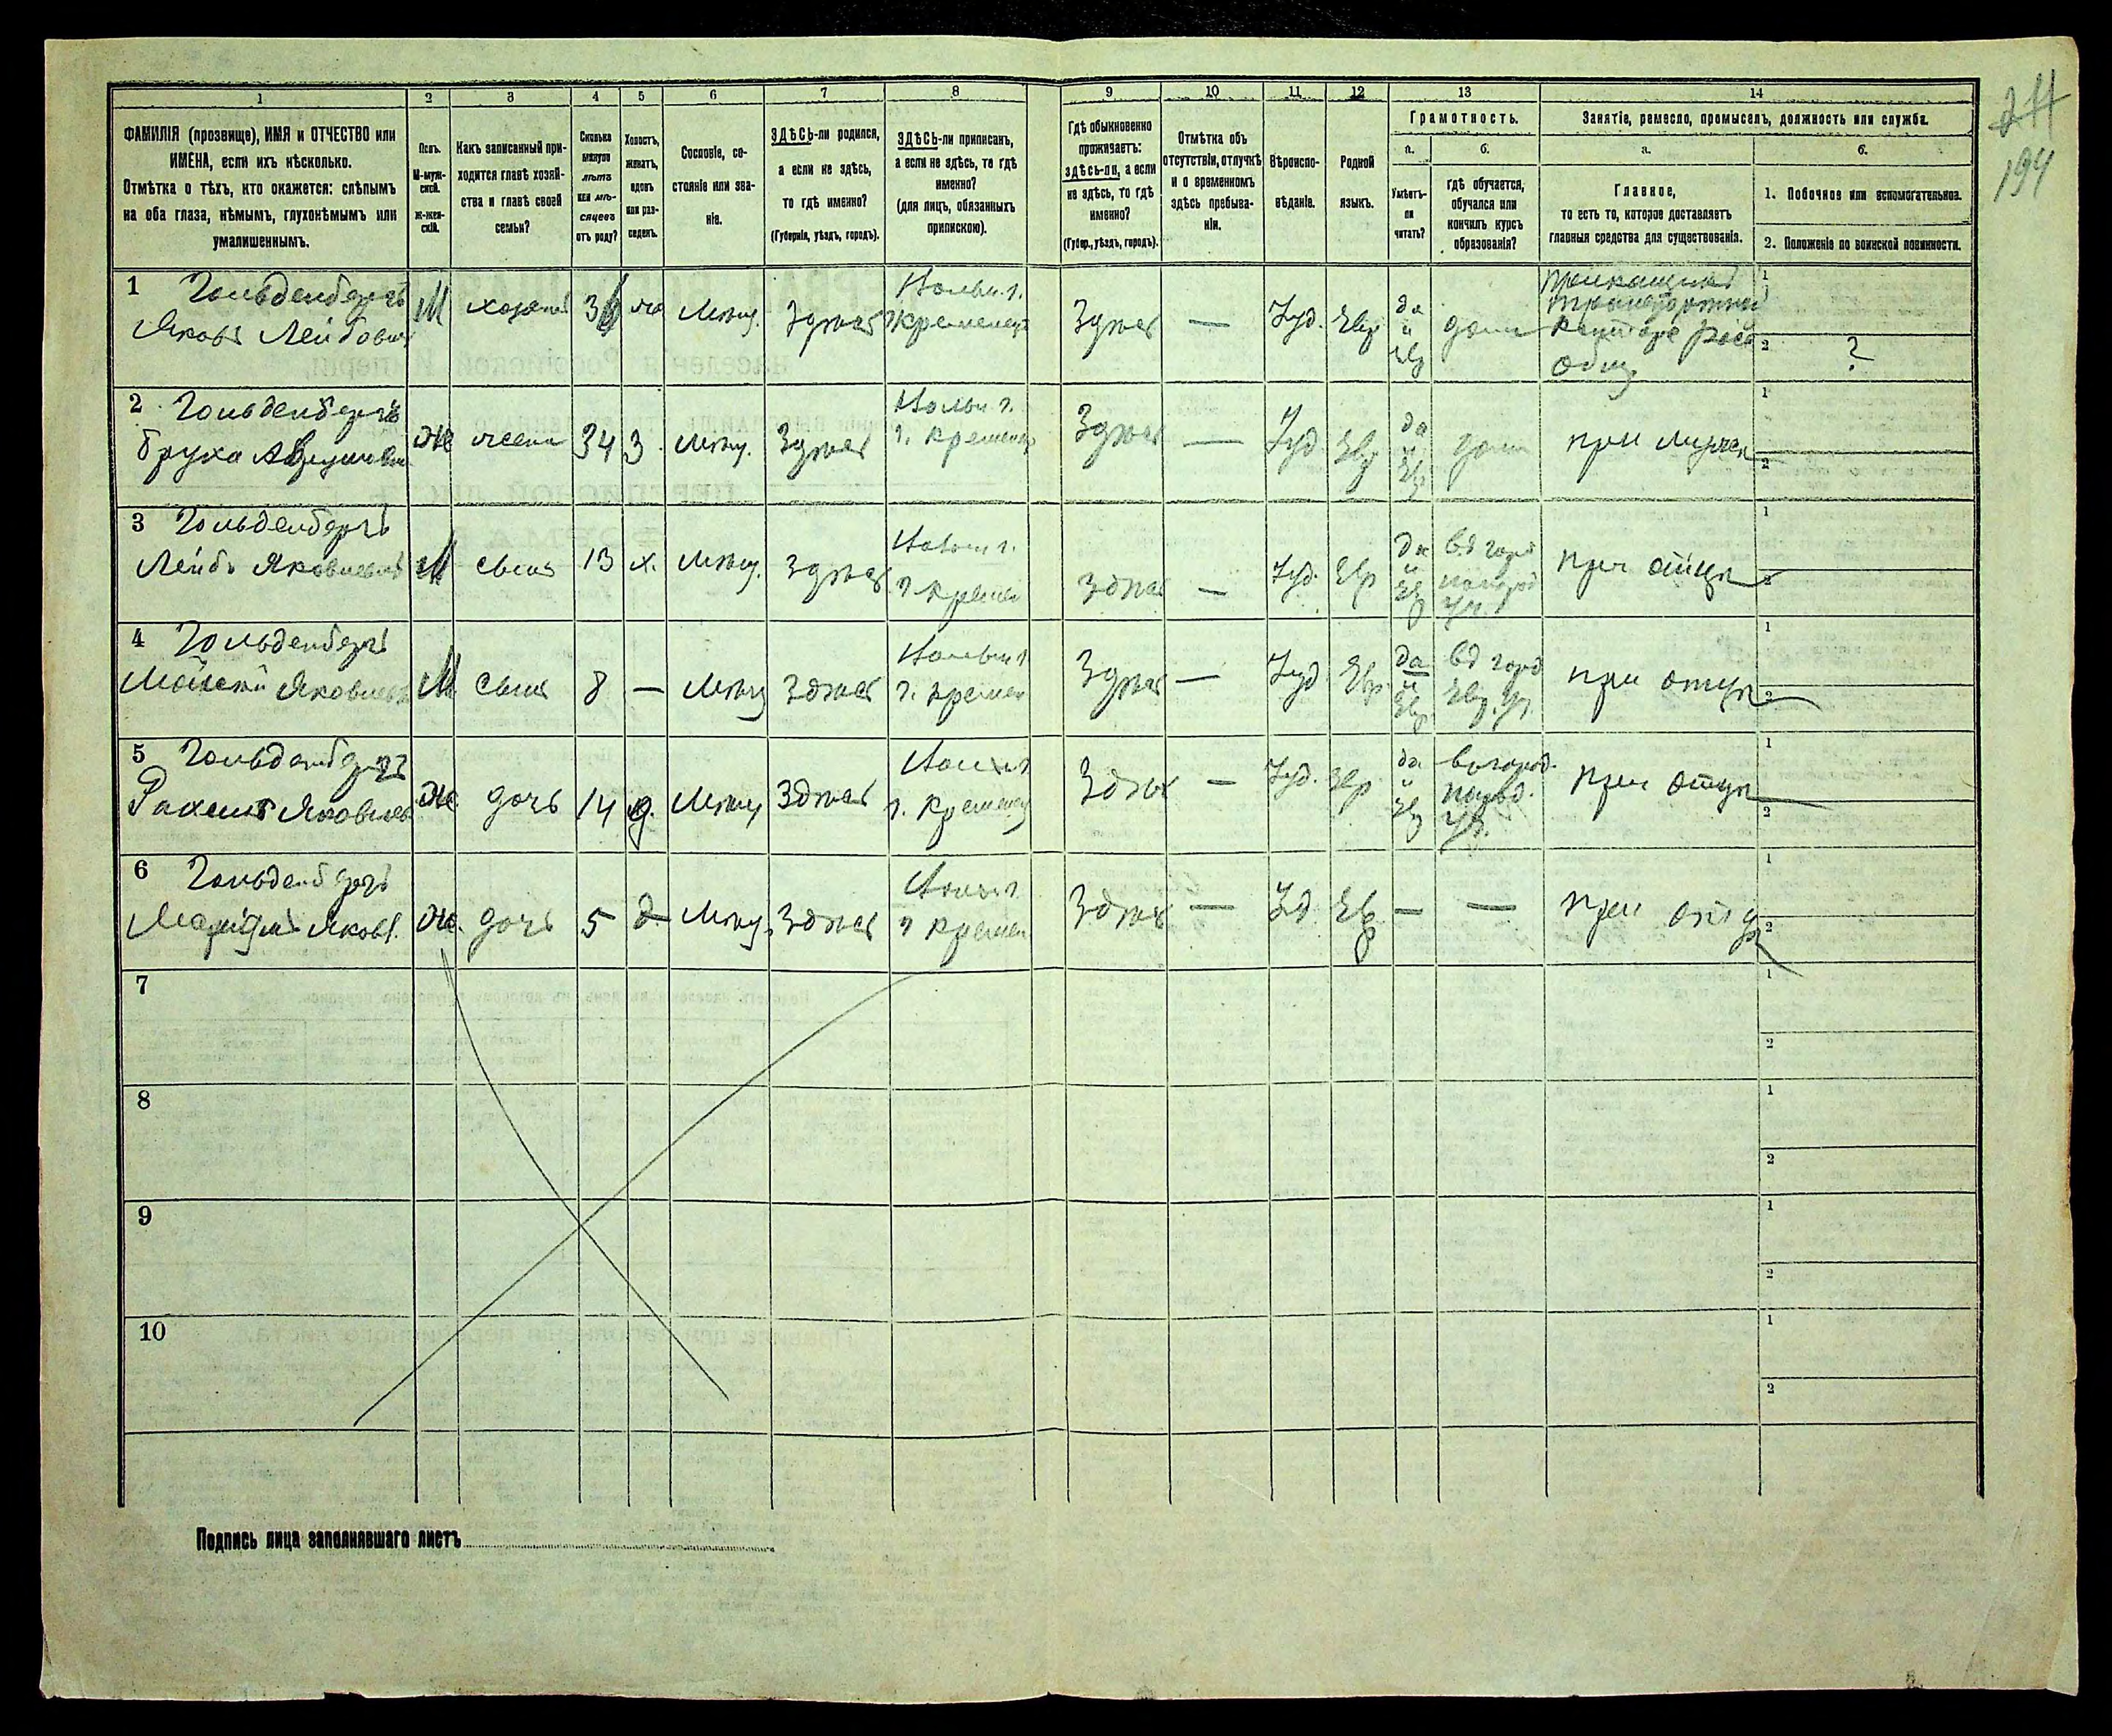 244
194
1 2 3 4 5 6 7 8 9 10 11 12 13 14
ФАМИЛІЯ (прозвище), ИМЯ и ОТЧЕСТВО или
ИМЕНА, если ихъ нѣсколько.
Отмѣтка о тѣхъ, кто окажется: слѣпымъ
на оба глаза, нѣмымъ, глухонѣмымъ или
умалишеннымъ.
Полъ.
М-муж-
ской.
Ж-жен-
скій.
Какъ записанный при-
ходится главѣ хозяй-
ства и главѣ своей
семьи?
Сколько
минуло
лѣтъ
или мѣ-
сяцевъ
отъ роду?
Холостъ,
женатъ,
вдовъ
или раз-
веденъ.
Сословіе, со-
стояніе или зва-
ніе.
ЗДѢСЬ-ли родился,
а если не здѣсь,
то гдѣ именно?
(Губернія, уѣздъ, городъ).
ЗДѢСЬ-ли приписанъ,
а если не здѣсь, то гдѣ
именно?
(для лицъ, обязанныхъ
припискою).
Гдѣ обыкновенно
проживаетъ:
здѣсь-ли, а если
не здѣсь, то гдѣ
именно?
(Губер., уѣздъ, городъ).
Отмѣтка объ
отсутствіи, отлучкѣ
и о временномъ
здѣсь пребыва-
ніи.
Вѣроиспо-
вѣданіе.
Родной
языкъ.
Грамотность.
а.
Умѣетъ-
ли
читать?
б.
Гдѣ обучается,
обучался или
кончилъ курсъ
образованія?
Занятіе, ремесло, промыселъ, должность или служба.
а.
Главное,
то есть то, которое доставляетъ
главныя средства для существованія.
б.
1. Побочное или вспомогательное.
2. Положеніе по воинской повинности.
1 Гольденбергъ
Яковъ Лейбович
М хозяинъ 36 же Мѣщ. Здѣсь
Волын. г.
Кременец
Здѣсь — Іуд. Евр
да
и
евр
дома
Прикащикъ
Транспортной
Конторе Росс
Общ.
1
2 ?
2 Гольденбергъ
Бруха
Же жена 34 з. Мѣщ. Здѣсь
Волын г.
г. Кременец
Здѣсь — Іуд. Евр
да
и
Евр
дома
при мужѣ
1
2
3 Гольденбергъ
Лейбъ Яковлевич
М сынъ 13 х. Мѣщ. Здѣсь
Волын г.
г. Кремен
Здѣсь — Іуд. Евр
да
и
Евр
въ город
уч.
при отцѣ
1
2
4 Гольденбергъ
Яковлевъ
М сынъ 8 — Мѣщ Здѣсь
Волын г
г. Кремен
Здѣсь — Іуд Евр.
да
и
Евр.
въ город
Евр. Уч.
при отцѣ
1
2
5 Гольденбергъ
Рахель Яковлев
Же дочь 14 д. Мѣщ Здѣсь
Волын г
г. Кременец
Здѣсь — Іуд. Евр
да
и
Евр
въ город.
Уч.
при отцѣ
1
2
6 Гольденбергъ
Марьямъ Яковл.
Же. дочь 5 д Мѣщ. Здѣсь
Волын г
г Кремен
Здѣсь — Іуд. Евр — —
при отцѣ
1
2
7
1
2
8
1
2
9
1
2
10
1
2
Подпись лица заполнявшаго листъ